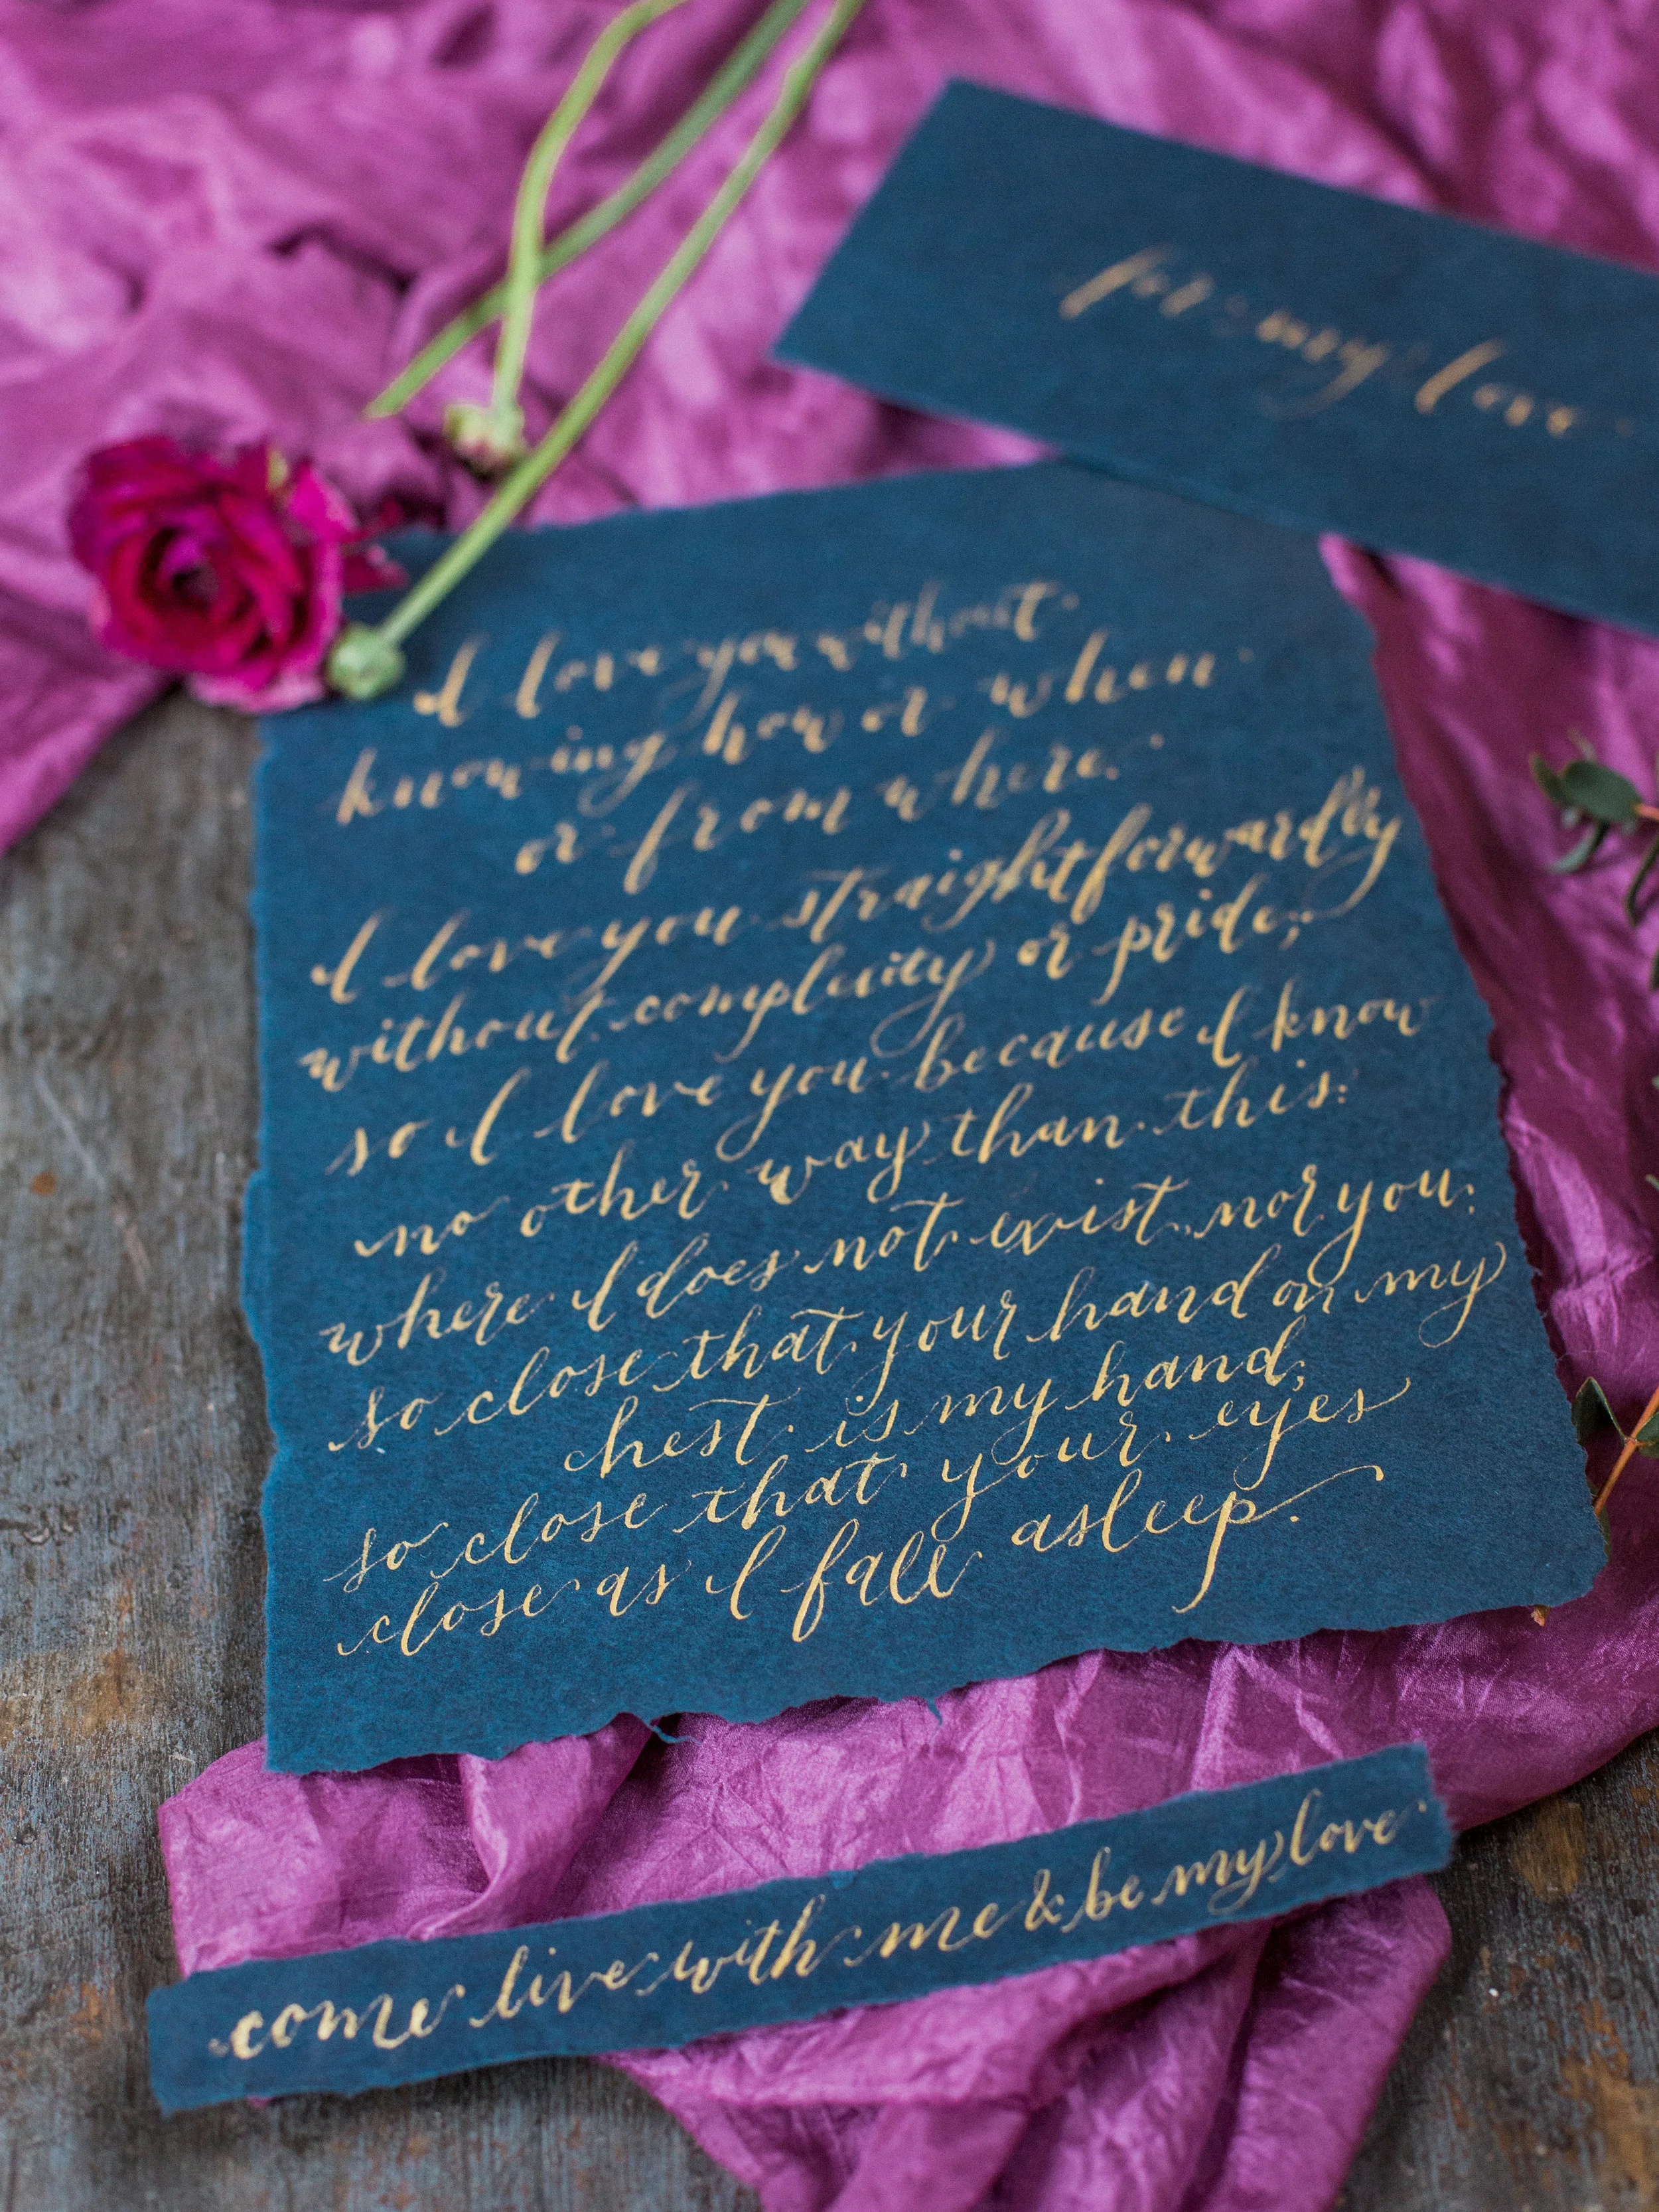 for my love
I love you without
knowing how or when
or from where.
I love you straightforwardly
without complexity or pride;
so I love you because I know
no other way than this:
where I does not exist, nor you:
so close that your hand on my
chest is my hand;
so close that your eyes
close as I fall asleep.
come live with me & be my love